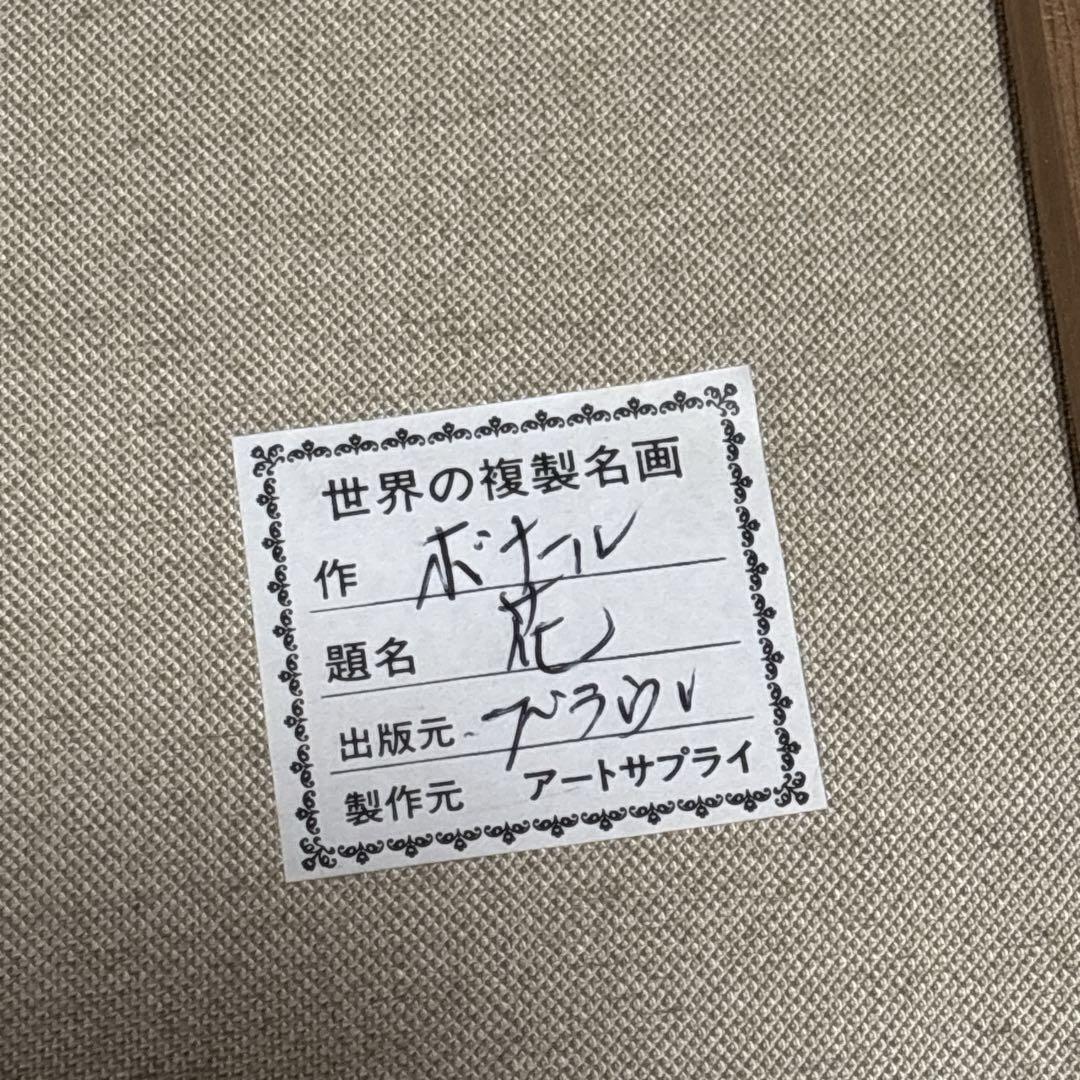 世界の複製名画
作 ボナール
題名 花
出版元 ブラウン
製作元 アートサプライ